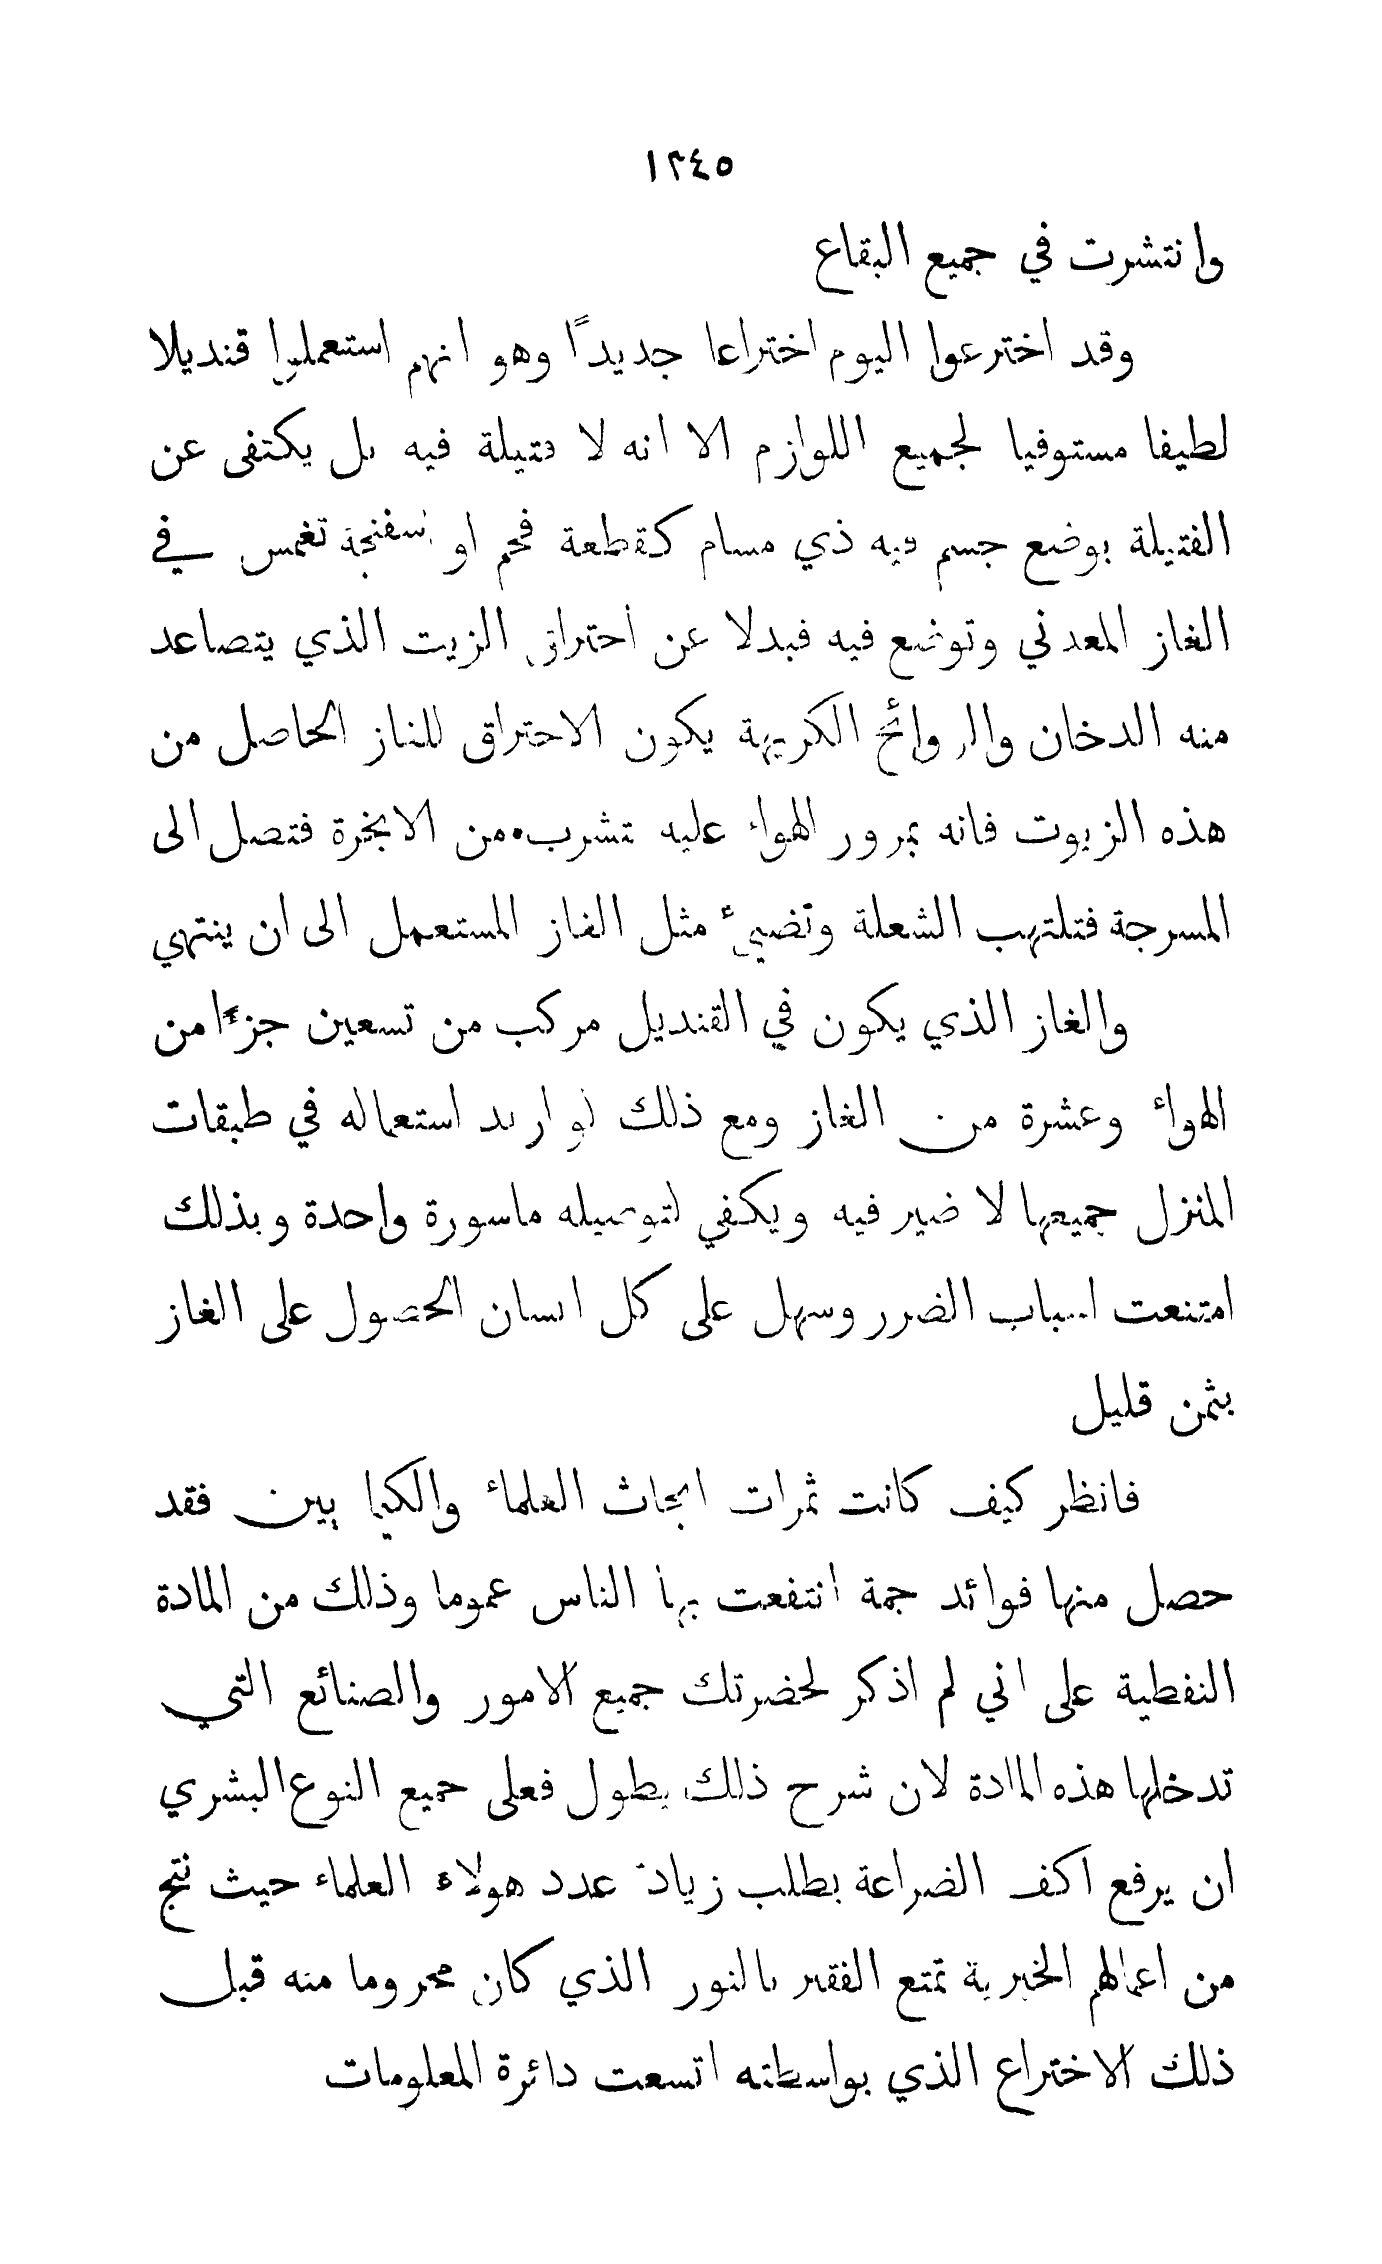 ١٢٤٥
وانتشرت في جميع البقاع
وقد اخترعوا اليوم اختراعا جديدًا وهو انهم استعملوا قنديلا
لطيفا مستوفيا لجميع اللوازم الا انه لا فتيلة فيه بل يكتفى عن
الفتيلة بوضع جسم فيه ذي مسام كقطعة فحم او اسفنجة تغمس في
الغاز المعدني وتوضع فيه فبدلا عن احتراق الزيت الذي يتصاعد
منه الدخان والروائح الكريهة يكون الاحتراق للغاز الحاصل من
هذه الزيوت فانه بمرور الهواء عليه تشرب من الابخرة فتصل الى
المسرجة فتلتهب الشعلة وتضيئ مثل الغاز المستعمل الى ان ينتهي
والغاز الذي يكون في القنديل مركب من تسعين جزءًا من
الهواء وعشرة من الغاز ومع ذلك لو اريد استعماله في طبقات
المنزل جميعها لا ضير فيه ويكفي لتوصيله ماسورة واحدة وبذلك
امتنعت اسباب الضرر وسهل على كل انسان الحصول على الغاز
بثمن قليل
فانظر كيف كانت ثمرات ابحاث العلماء والكيماييين فقد
حصل منها فوائد جمة انتفعت بها الناس عموما وذلك من المادة
النفطية على اني لم اذكر لحضرتك جميع الامور والصنائع التي
تدخلها هذه المادة لان شرح ذلك يطول فعلى جميع النوع البشري
ان يرفع اكف الضراعة بطلب زيادة عدد هولاء العلماء حيث نتج
من اعمالهم الخيرية تمتع الفقير بالنور الذي كان محروما منه قبل
ذلك الاختراع الذي بواسطته اتسعت دائرة المعلومات